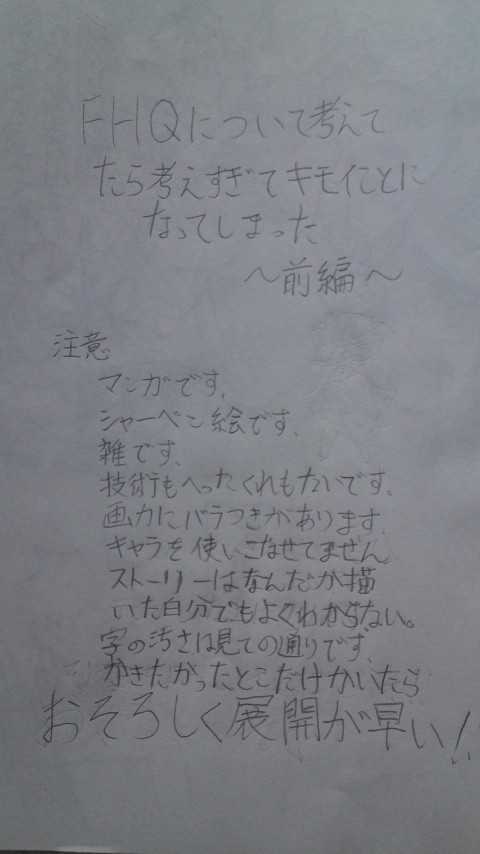 FHQについて考えて
たら考えすぎてキモイことに
なってしまった
～前編～
注意
マンガです、
シャーペン絵です、
雑です、
技術もへったくれもないです。
画力にバラつきがあります、
キャラを使いこなせてません
ストーリーはなんだか描
いた自分でもよくわからない。
字の汚さは見ての通りです、
かきたかったとこだけかいたら
おそろしく展開が早い!